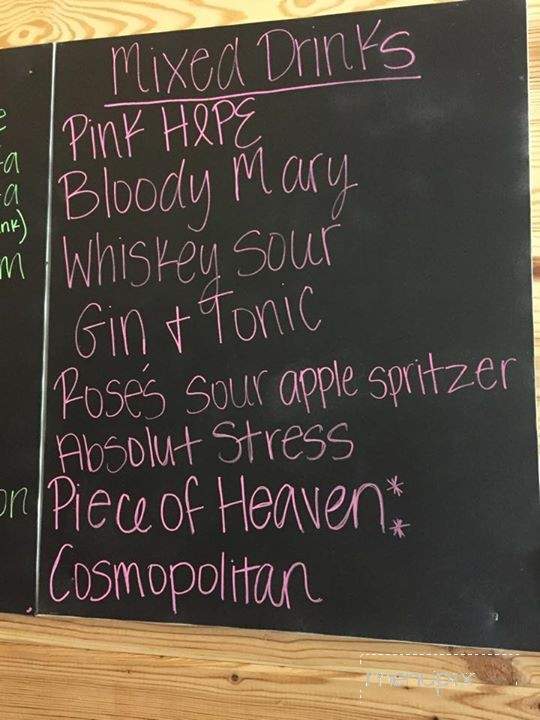 Mixed Drinks
Pink HOPE
Bloody Mary
Whiskey Sour
Gin + Tonic
Rose's sour apple spritzer
Absolut Stress
Piece of Heaven**
Cosmopolitan
nk)
on
menupix